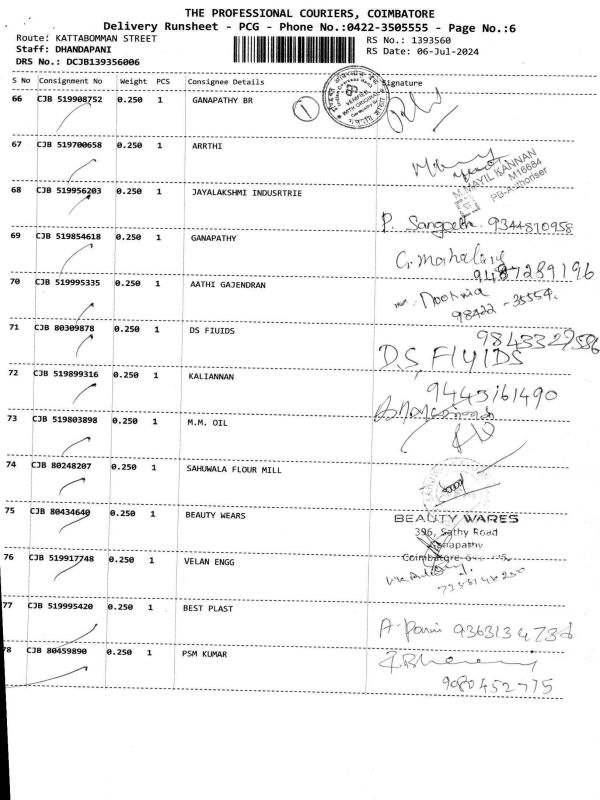 THE PROFESSIONAL COURIERS, COIMBATORE
Delivery Runsheet - PCG - Phone No.:0422-3505555 - Page No.:6
Route: KATTABOMMAN STREET RS No.: 1393560
Staff: DHANDAPANI RS Date: 06-Jul-2024
DRS No.: DCJB139356006
S No Consignment No Weight PCS Consignee Details Signature
66 CJB 519908752 0.250 1 GANAPATHY BR 1
67 CJB 519700658 0.250 1 ARRTHI
M.MAYIL KANNAN
M16684
68 CJB 519956203 0.250 1 JAYALAKSHMI INDUSRTRIE
P. Sangeeth 9344810958
69 CJB 519854618 0.250 1 GANAPATHY
G. Mahalang
9487289196
70 CJB 519995335 0.250 1 AATHI GAJENDRAN
98422-35554.
71 CJB 80309878 0.250 1 DS FIUIDS
9843329586
D.S, FlYIDS
72 CJB 519899316 0.250 1 KALIANNAN
9443161490
73 CJB 519803898 0.250 1 M.M. OIL
74 CJB 80248207 0.250 1 SAHUWALA FLOUR MILL
75 CJB 80434640 0.250 1 BEAUTY WEARS
BEAUTY WARES
396, Sathy Road
Ganapathy
Coimbatore
76 CJB 519917748 0.250 1 VELAN ENGG
77 CJB 519995420 0.250 1 BEST PLAST
A. 9363134738
78 CJB 80459890 0.250 1 PSM KUMAR
9080452775